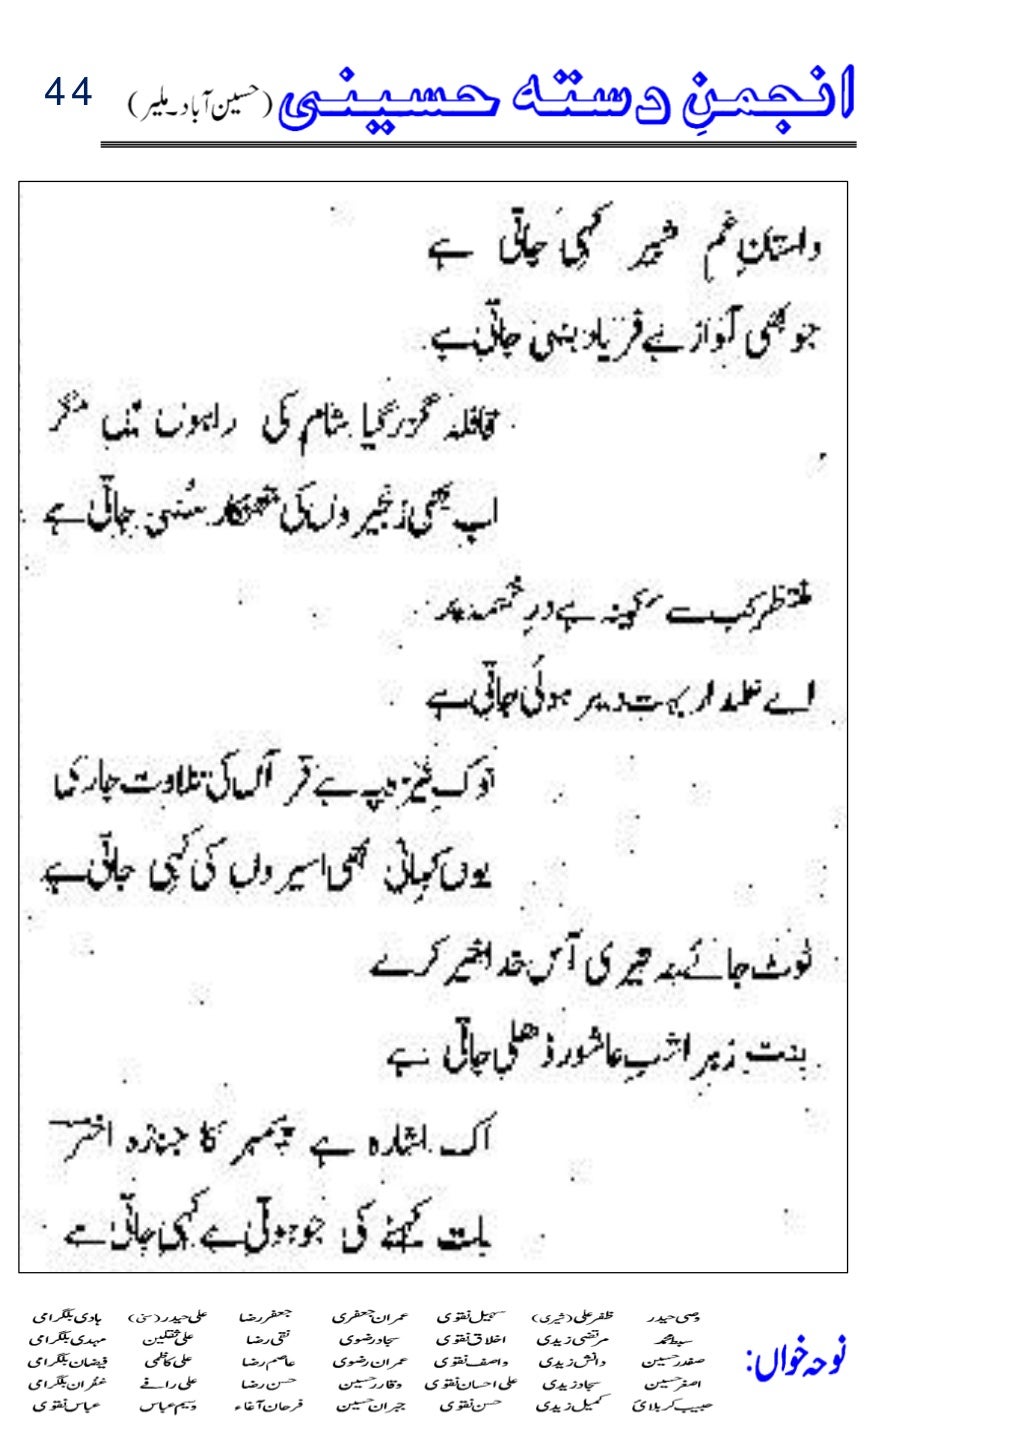 انجمنِ دستہ حسینی (حسین آباد۔ملیر) 44
داستانِ غم شبیر کہی جاتی ہے
جو بھی آواز ہے فریاد بنی جاتی ہے
قافلہ گزر گیا شام کی راہوں میں مگر
اب بھی زنجیروں کی جھنکار سُنی جاتی ہے
منتظر کب سے سکینہ ہے درِ خیمہ پر
اے علمدار بہت دیر ہوئی جاتی ہے
نوکِ نیزہ پہ ہے قرآں کی تلاوت جاری
یوں کہانی بھی اسیروں کی کہی جاتی ہے
ٹوٹ جائے نہ تیری آس خدا خیر کرے
بنت زہرا شبِ عاشور ڈھلی جاتی ہے
اک اشارہ ہے پیمبر کا جنازہ اختر
بات کہنے کی جو ہوتی ہے کہی جاتی ہے
نوحہ خواں:
وصی حیدر ظفر علی (شیری) سہیل نقوی عمران جعفری جعفر رضا علی حیدر (سنی) ہادی بلگرامی
سبط محمد مرتضی زیدی اخلاق نقوی سجاد رضوی نقی رضا علی ثقلین مہدی بلگرامی
صفدر حسین دانش زیدی واصف نقوی عمران رضوی عاصم رضا علی کاظمی فیضان بلگرامی
اصغر حسین سجاد زیدی علی احسان نقوی وقار حسین حسن رضا علی رافع غفران بلگرامی
حبیب کربلائی کمیل زیدی حسن نقوی جبران حسین فرحان آغاء وسیم عباس عباس نقوی